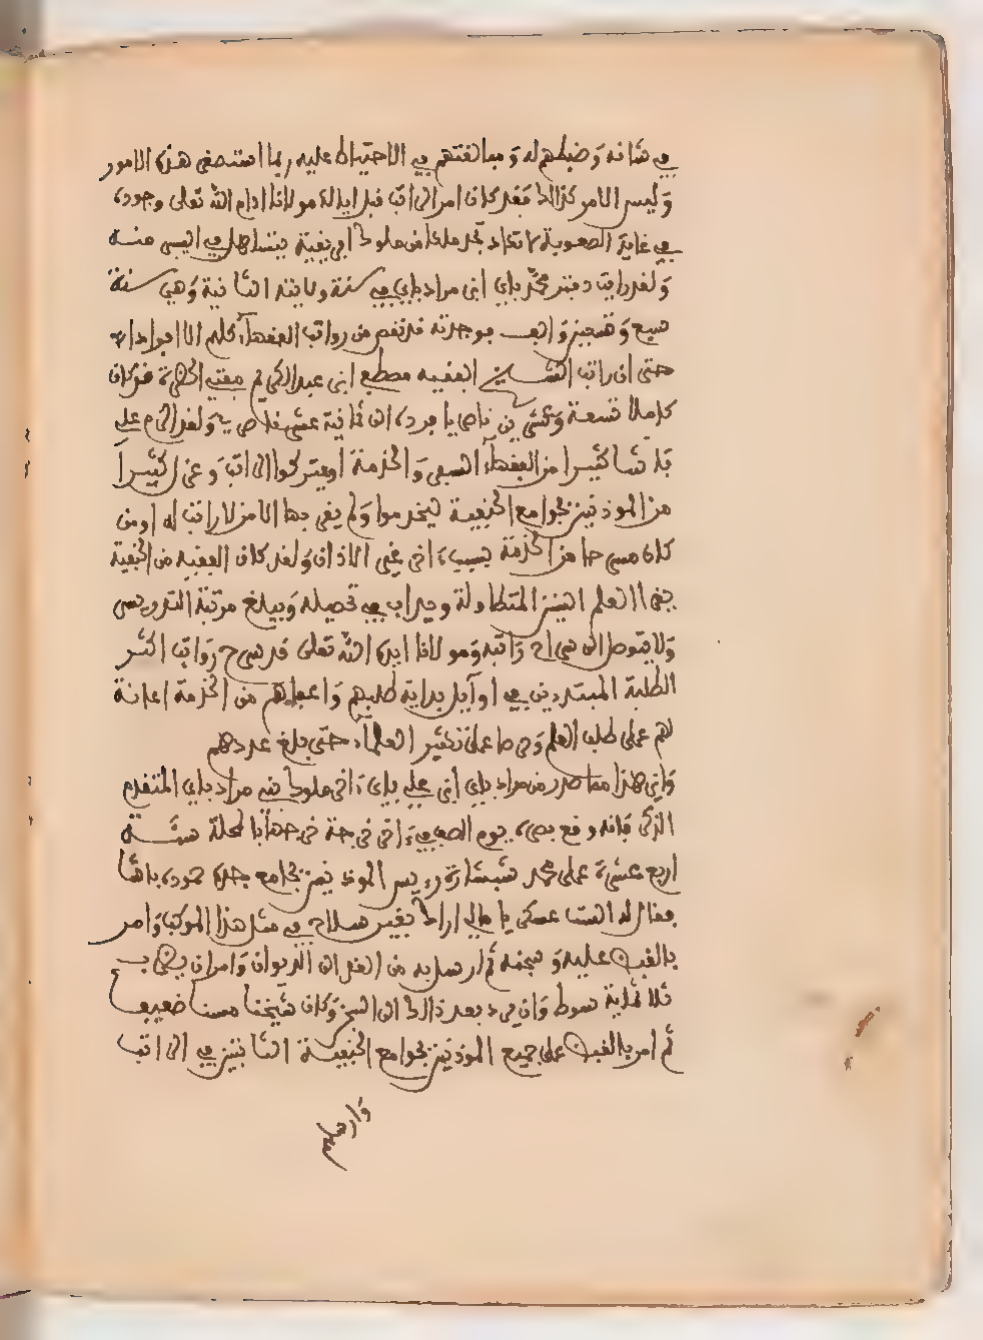 في شانه وضبطهم له ومبالغتهم في الاحتياط عليه ربما استصغى هذه الامور
وليس الامر كذالك فقد كان امر الراتب قبل ايالة مولانا ادام الله تعلى وجوده
في غاية الصعوبة لا تكاد تجد ملكا من ملوك افريقية يتساهل في اليسير منه
ولقد رايت دفتر محمد باي ابن مراد باي في سنة ولايته الثانية وهي سنة
سبع وتسعين والف فوجدته قد نقص من رواتب الفقهاء كلهم الا افرادا
حتى ان راتب الشيخ الفقيه مصطفى ابن عبد الكريم مفتي الحضرة فوكان
كاملا تسعة وعشرين ناصريا فرده الى ثمانية عشر ناصريا ولقد الزم علي
باشا كثيرا من الفقهاء السفر والخدمة او يتركوا الراتب وعزل كثيراً
من الموذنين بجوامع الحنفية ليخدموا ولم يبق بها الا من لا راتب له او من
كان مسرحا من الخدمة بسبب اخر غير الاذان ولقد كان الفقيه من الحنفية
يقرا العلم السنين المتطاولة ويداب في تحصيله ويبلغ مرتبة التدريس
ولا يتوصل الى سراح راتبه ومولانا ايده الله تعلى قد سرح رواتب اكثر
الطلبة المبتدئين في اوايل بداية طلبهم واعفاهم من الخدمة اعانة
لهم على طلب العلم وحرصا على تكثير العلماء حتى بلغ عددهم
واين هذا مما صدر من مراد باي ابن علي باي اخر ملوك بني مراد باي المتقدم
الذكر فانه وقع بصره يوم الصيف في اخر خرجة خرجها بالمحلة سنة
اربع عشرة على محمد شبشارة ريس الموذنين بجامع جده حموده باشا
فقال له الست عسكريا ما لي اراك بغير سلاح في مثل هذا الموكب وامر
بالقبض عليه وسجنه ثم ارسل به من الغد الى الديوان وامر ان يضرب
ثلاثماية سوط وان يرد بعد ذالك الى السجن وكان شيخا مسنا ضعيفا
ثم امر بالقبض على جميع الموذنين بجوامع الحنفية الثابتين في الراتب
وارسلهم